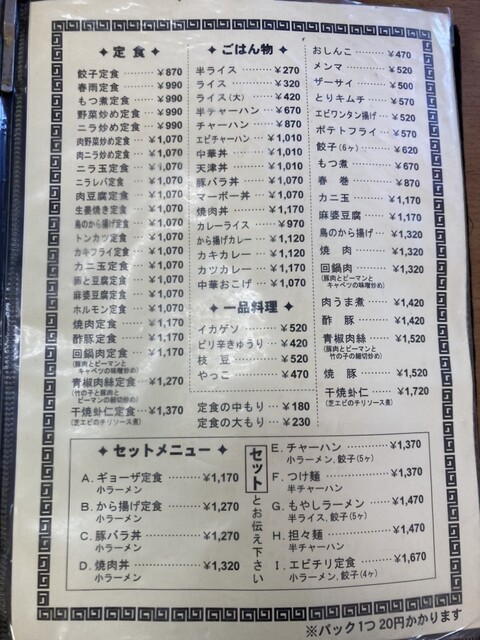 ✦ 定食 ✦
餃子定食 ……… ￥870
春雨定食 ……… ￥990
もつ煮定食 …… ￥990
野菜炒め定食 … ￥990
ニラ炒め定食 … ￥990
肉野菜炒め定食 … ￥1,070
肉ニラ炒め定食 … ￥1,070
ニラ玉定食 …… ￥1,070
ニラレバ定食 … ￥1,070
肉豆腐定食 …… ￥1,070
生姜焼き定食 … ￥1,070
鳥のから揚げ定食 … ￥1,070
トンカツ定食 … ￥1,070
カキフライ定食 … ￥1,070
カニ玉定食 …… ￥1,070
豚と豆腐定食 … ￥1,070
麻婆豆腐定食 … ￥1,070
ホルモン定食 … ￥1,070
焼肉定食 ……… ￥1,170
酢豚定食 ……… ￥1,170
回鍋肉定食 …… ￥1,170
(豚肉とピーマンと
キャベツの味噌炒め)
青椒肉絲定食 … ￥1,270
(竹の子と豚肉と
ピーマンの細切炒め)
干焼蝦仁定食 … ￥1,370
(芝エビのチリソース煮)
✦ ごはん物 ✦
半ライス ……… ￥270
ライス ………… ￥320
ライス(大) …… ￥420
半チャーハン … ￥670
チャーハン …… ￥870
エビチャーハン … ￥1,010
中華丼 ………… ￥1,010
天津丼 ………… ￥1,010
豚バラ丼 ……… ￥1,070
マーボー丼 …… ￥1,070
焼肉丼 ………… ￥1,170
カレーライス … ￥970
から揚げカレー … ￥1,120
カキカレー …… ￥1,120
カツカレー …… ￥1,170
中華おこげ …… ￥1,070
✦ 一品料理 ✦
イカゲソ ……… ￥520
ピリ辛きゅうり … ￥420
枝豆 …………… ￥520
やっこ ………… ￥470
定食の中もり … ￥180
定食の大もり … ￥230
おしんこ ……… ￥470
メンマ ………… ￥520
ザーサイ ……… ￥500
とりキムチ …… ￥570
エビワンタン揚げ … ￥520
ポテトフライ … ￥570
餃子(6ヶ) ……… ￥620
もつ煮 ………… ￥670
春巻 …………… ￥870
カニ玉 ………… ￥1,170
麻婆豆腐 ……… ￥1,170
鳥のから揚げ … ￥1,320
焼肉 …………… ￥1,320
回鍋肉 ………… ￥1,320
(豚肉とピーマンと
キャベツの味噌炒め)
肉うま煮 ……… ￥1,420
酢豚 …………… ￥1,420
青椒肉絲 ……… ￥1,520
(豚肉とピーマンと
竹の子の細切炒め)
焼豚 …………… ￥1,520
干焼蝦仁 ……… ￥1,720
(芝エビのチリソース煮)
✦ セットメニュー ✦
A. ギョーザ定食 …… ￥1,170
小ラーメン
B. から揚げ定食 …… ￥1,270
小ラーメン
C. 豚バラ丼 ………… ￥1,270
小ラーメン
D. 焼肉丼 …………… ￥1,320
小ラーメン
セットとお伝え下さい
E. チャーハン ……… ￥1,370
小ラーメン, 餃子(5ヶ)
F. つけ麺 …………… ￥1,370
半チャーハン
G. もやしラーメン … ￥1,470
半ライス, 餃子(5ヶ)
H. 担々麺 …………… ￥1,470
半チャーハン
I. エビチリ定食 …… ￥1,670
小ラーメン, 餃子(4ヶ)
※パック1つ20円かかります